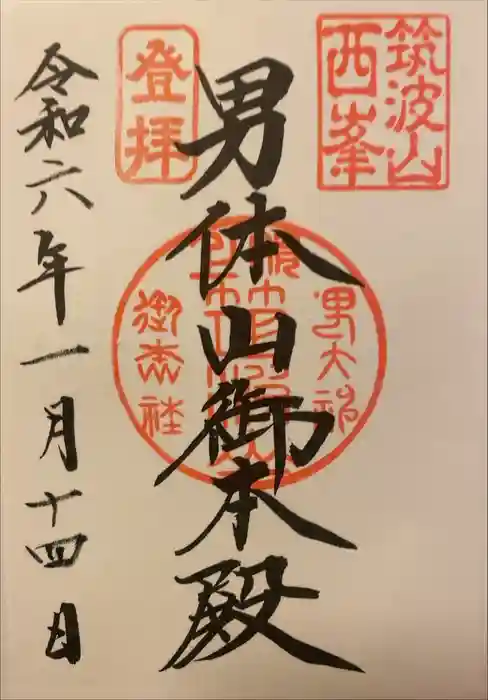 筑波山
西峯
男体山御本殿
登拝
令和六年一月十四日
御本社